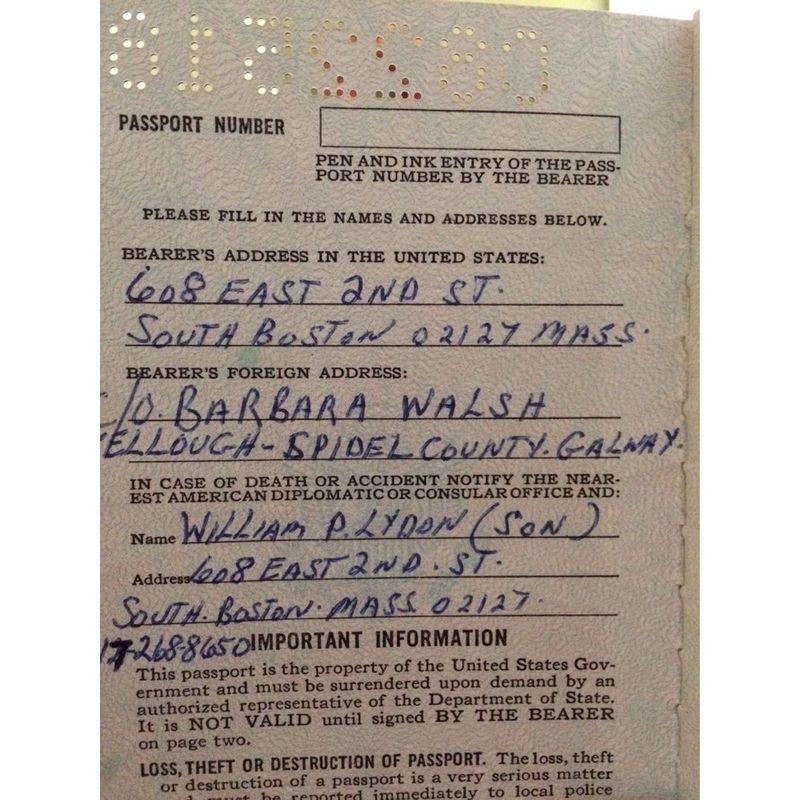 PASSPORT NUMBER
PEN AND INK ENTRY OF THE PASS-
PORT NUMBER BY THE BEARER
PLEASE FILL IN THE NAMES AND ADDRESSES BELOW.
BEARER'S ADDRESS IN THE UNITED STATES:
608 EAST 2ND ST.
SOUTH BOSTON 02127 MASS.
BEARER'S FOREIGN ADDRESS:
C/O. BARBARA WALSH
ELLOUGH- SPIDEL COUNTY. GALWAY.
IN CASE OF DEATH OR ACCIDENT NOTIFY THE NEAR-
EST AMERICAN DIPLOMATIC OR CONSULAR OFFICE AND:
Name WILLIAM P. LYDON (SON)
Address 608 EAST 2ND. ST.
SOUTH. BOSTON. MASS. 02127.
17-268-8650 IMPORTANT INFORMATION
This passport is the property of the United States Gov-
ernment and must be surrendered upon demand by an
authorized representative of the Department of State.
It is NOT VALID until signed BY THE BEARER
on page two.
LOSS, THEFT OR DESTRUCTION OF PASSPORT. The loss, theft
or destruction of a passport is a very serious matter
must be reported immediately to local police